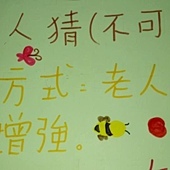 人猜(不可
方式：老人
增強。